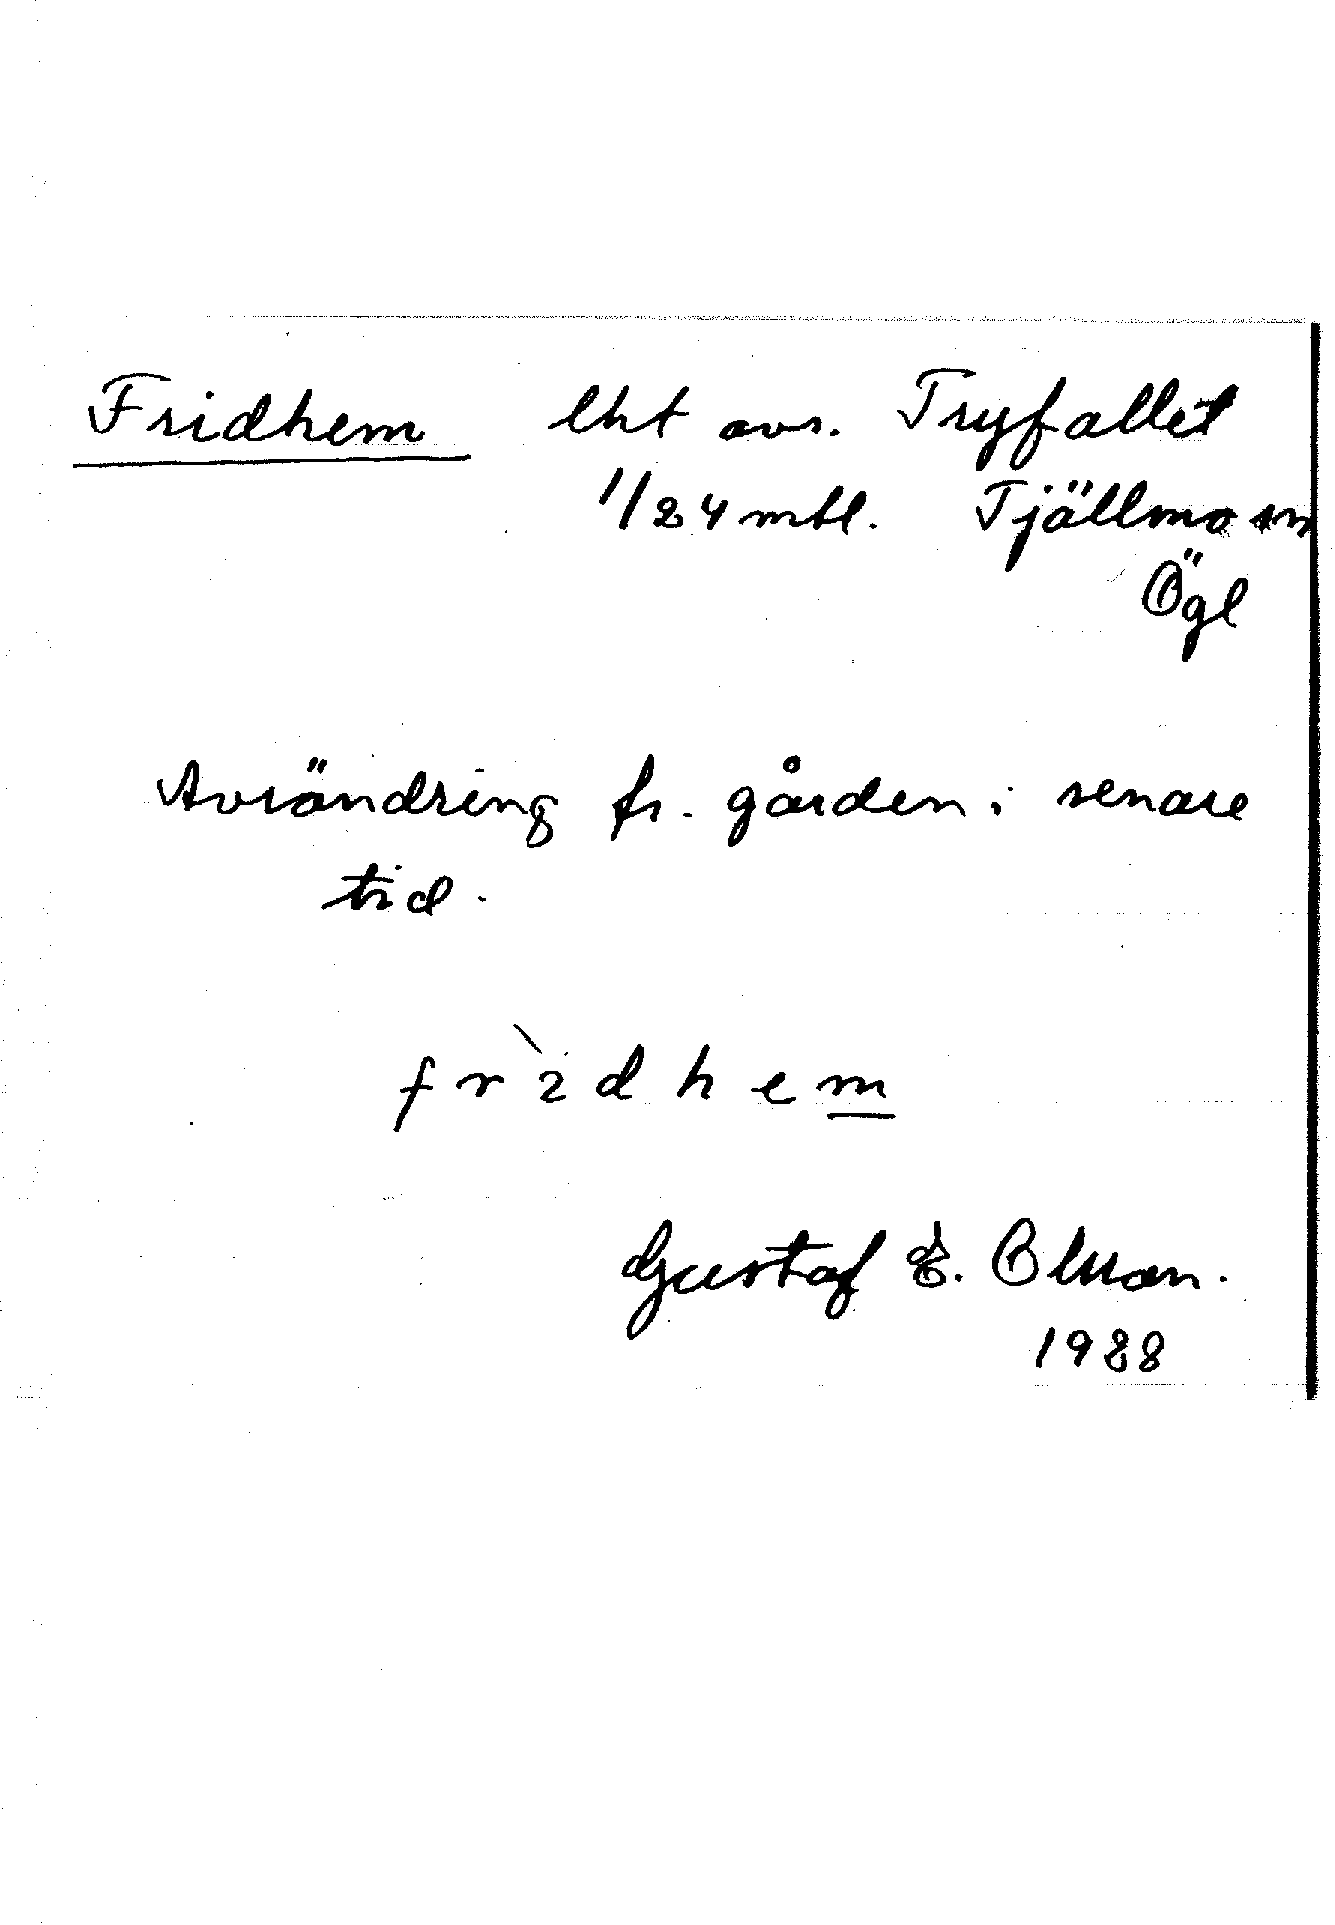 Fridhem lht avs. Tryfallet
1/24 mtl. Tjällmo sn
Ögl
Avsöndring fr. gården i senare
tid.
fr̀idhem
Gustaf E. Olsson.
1988